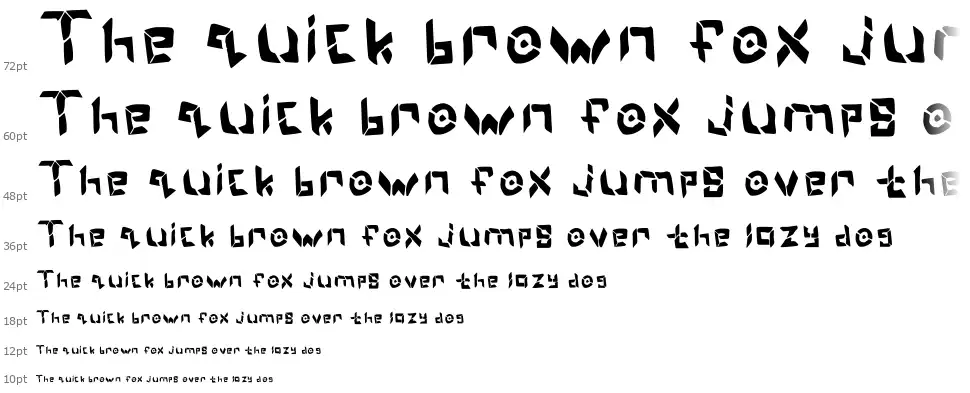 72pt The quick brown fox jur
60pt The quick brown fox jumps o
48pt The quick brown fox jumps over the
36pt The quick brown fox jumps over the lazy dog
24pt The quick brown fox jumps over the lazy dog
18pt The quick brown fox jumps over the lazy dog
12pt The quick brown fox jumps over the lazy dog
10pt The quick brown fox jumps over the lazy dog